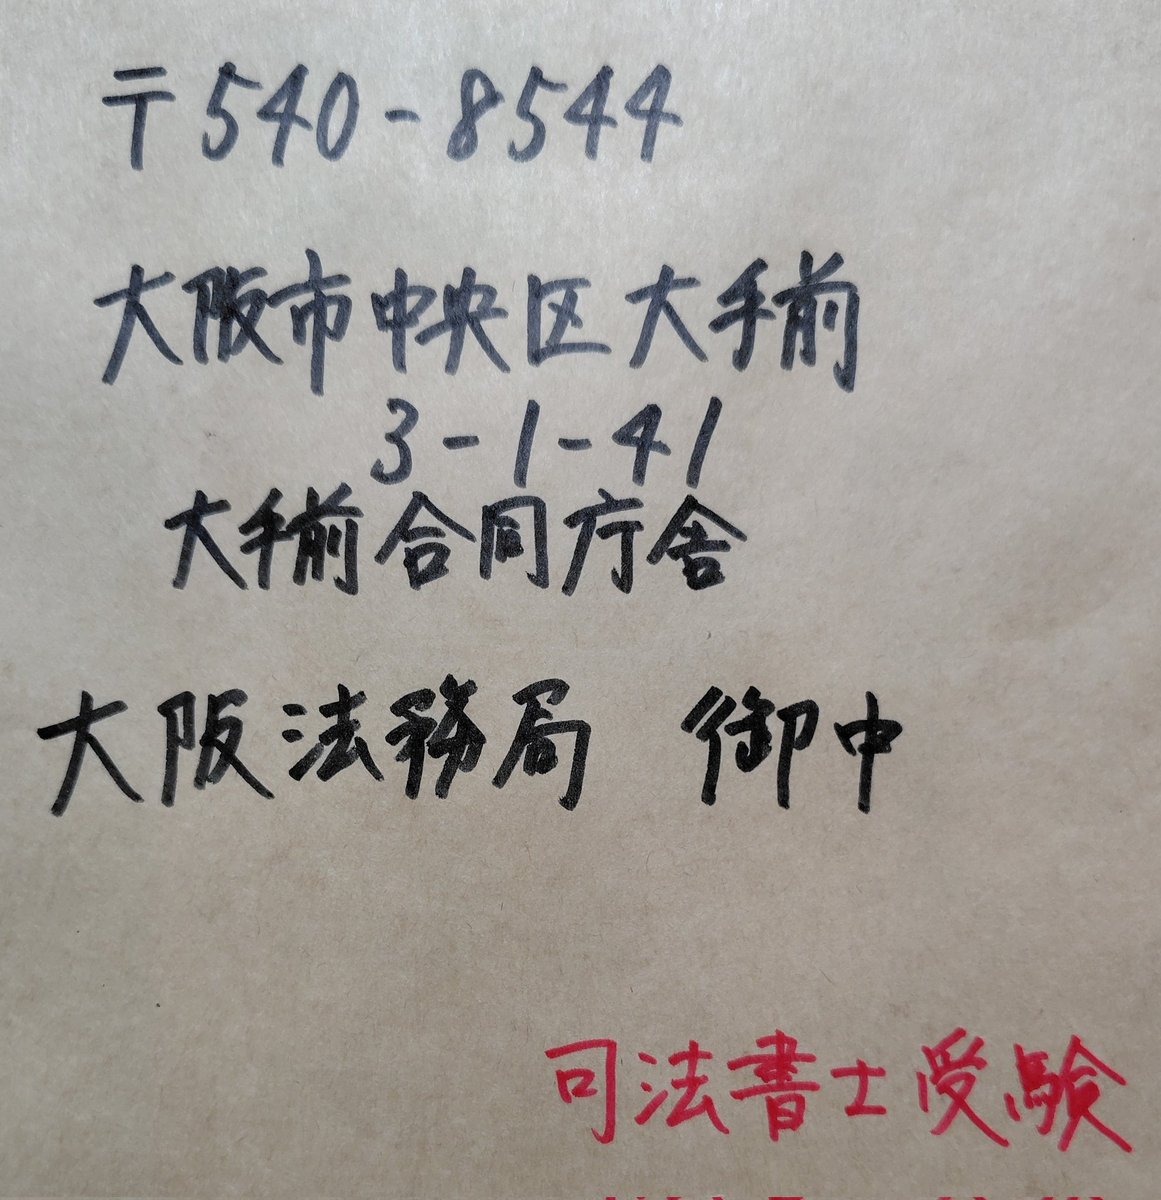 〒540-8544
大阪市中央区大手前
3-1-41
大手前合同庁舎
大阪法務局 御中
司法書士受験